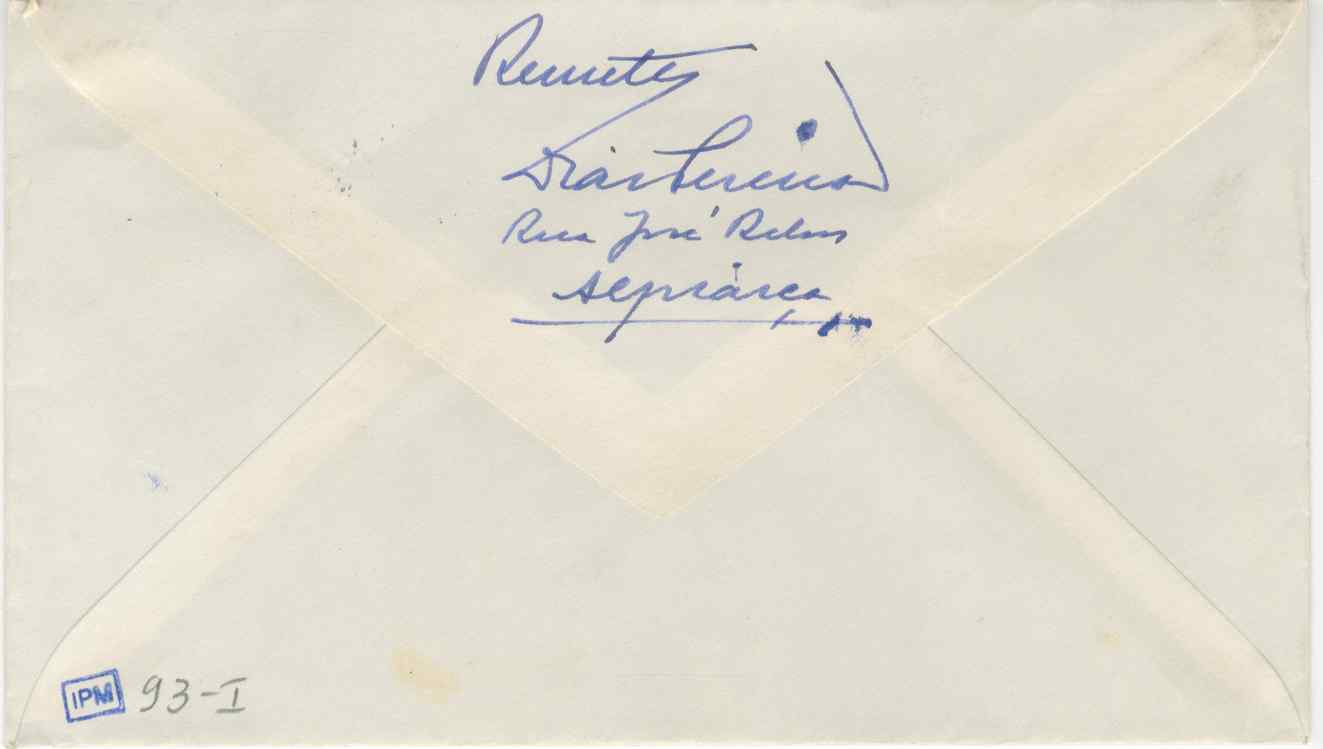 Remete
Dias
Rua José Relvas
Alpiarça
IPM 93-I